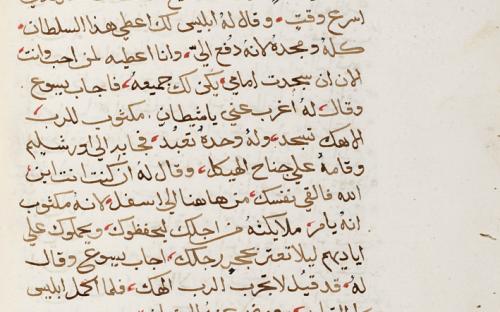 اسرع وقتٍ. وقال لهُ ابليس لك اعطي هذا السلطان
كلهُ ومجدهُ لانهُ دُفع اليّ. وانا اعطيه لمن احب وانت
الان ان سجدت امامي يكن لك جميعهُ. فاجاب يسوع
وقال لهُ اغرب عني يا شيطان. مكتوب للرب
الاهك تسجد ولهُ وحدهُ تعبُد. فجا به الى اورشليم
وقامهُ على جناح الهيكل. وقال لهُ ان كنت انت ابن
الله فالقى نفسك من هاهنا الى اسفل لانهُ مكتوب
انهُ يامر ملايكتهُ من اجلك ليحفظوك ويحملوك على
اياديهم ليلا تعتر بحجر رجلك. اجاب يسوع وقال
لهُ قد قيل لا تجرب الرب الهك. فلما اكمل ابليس